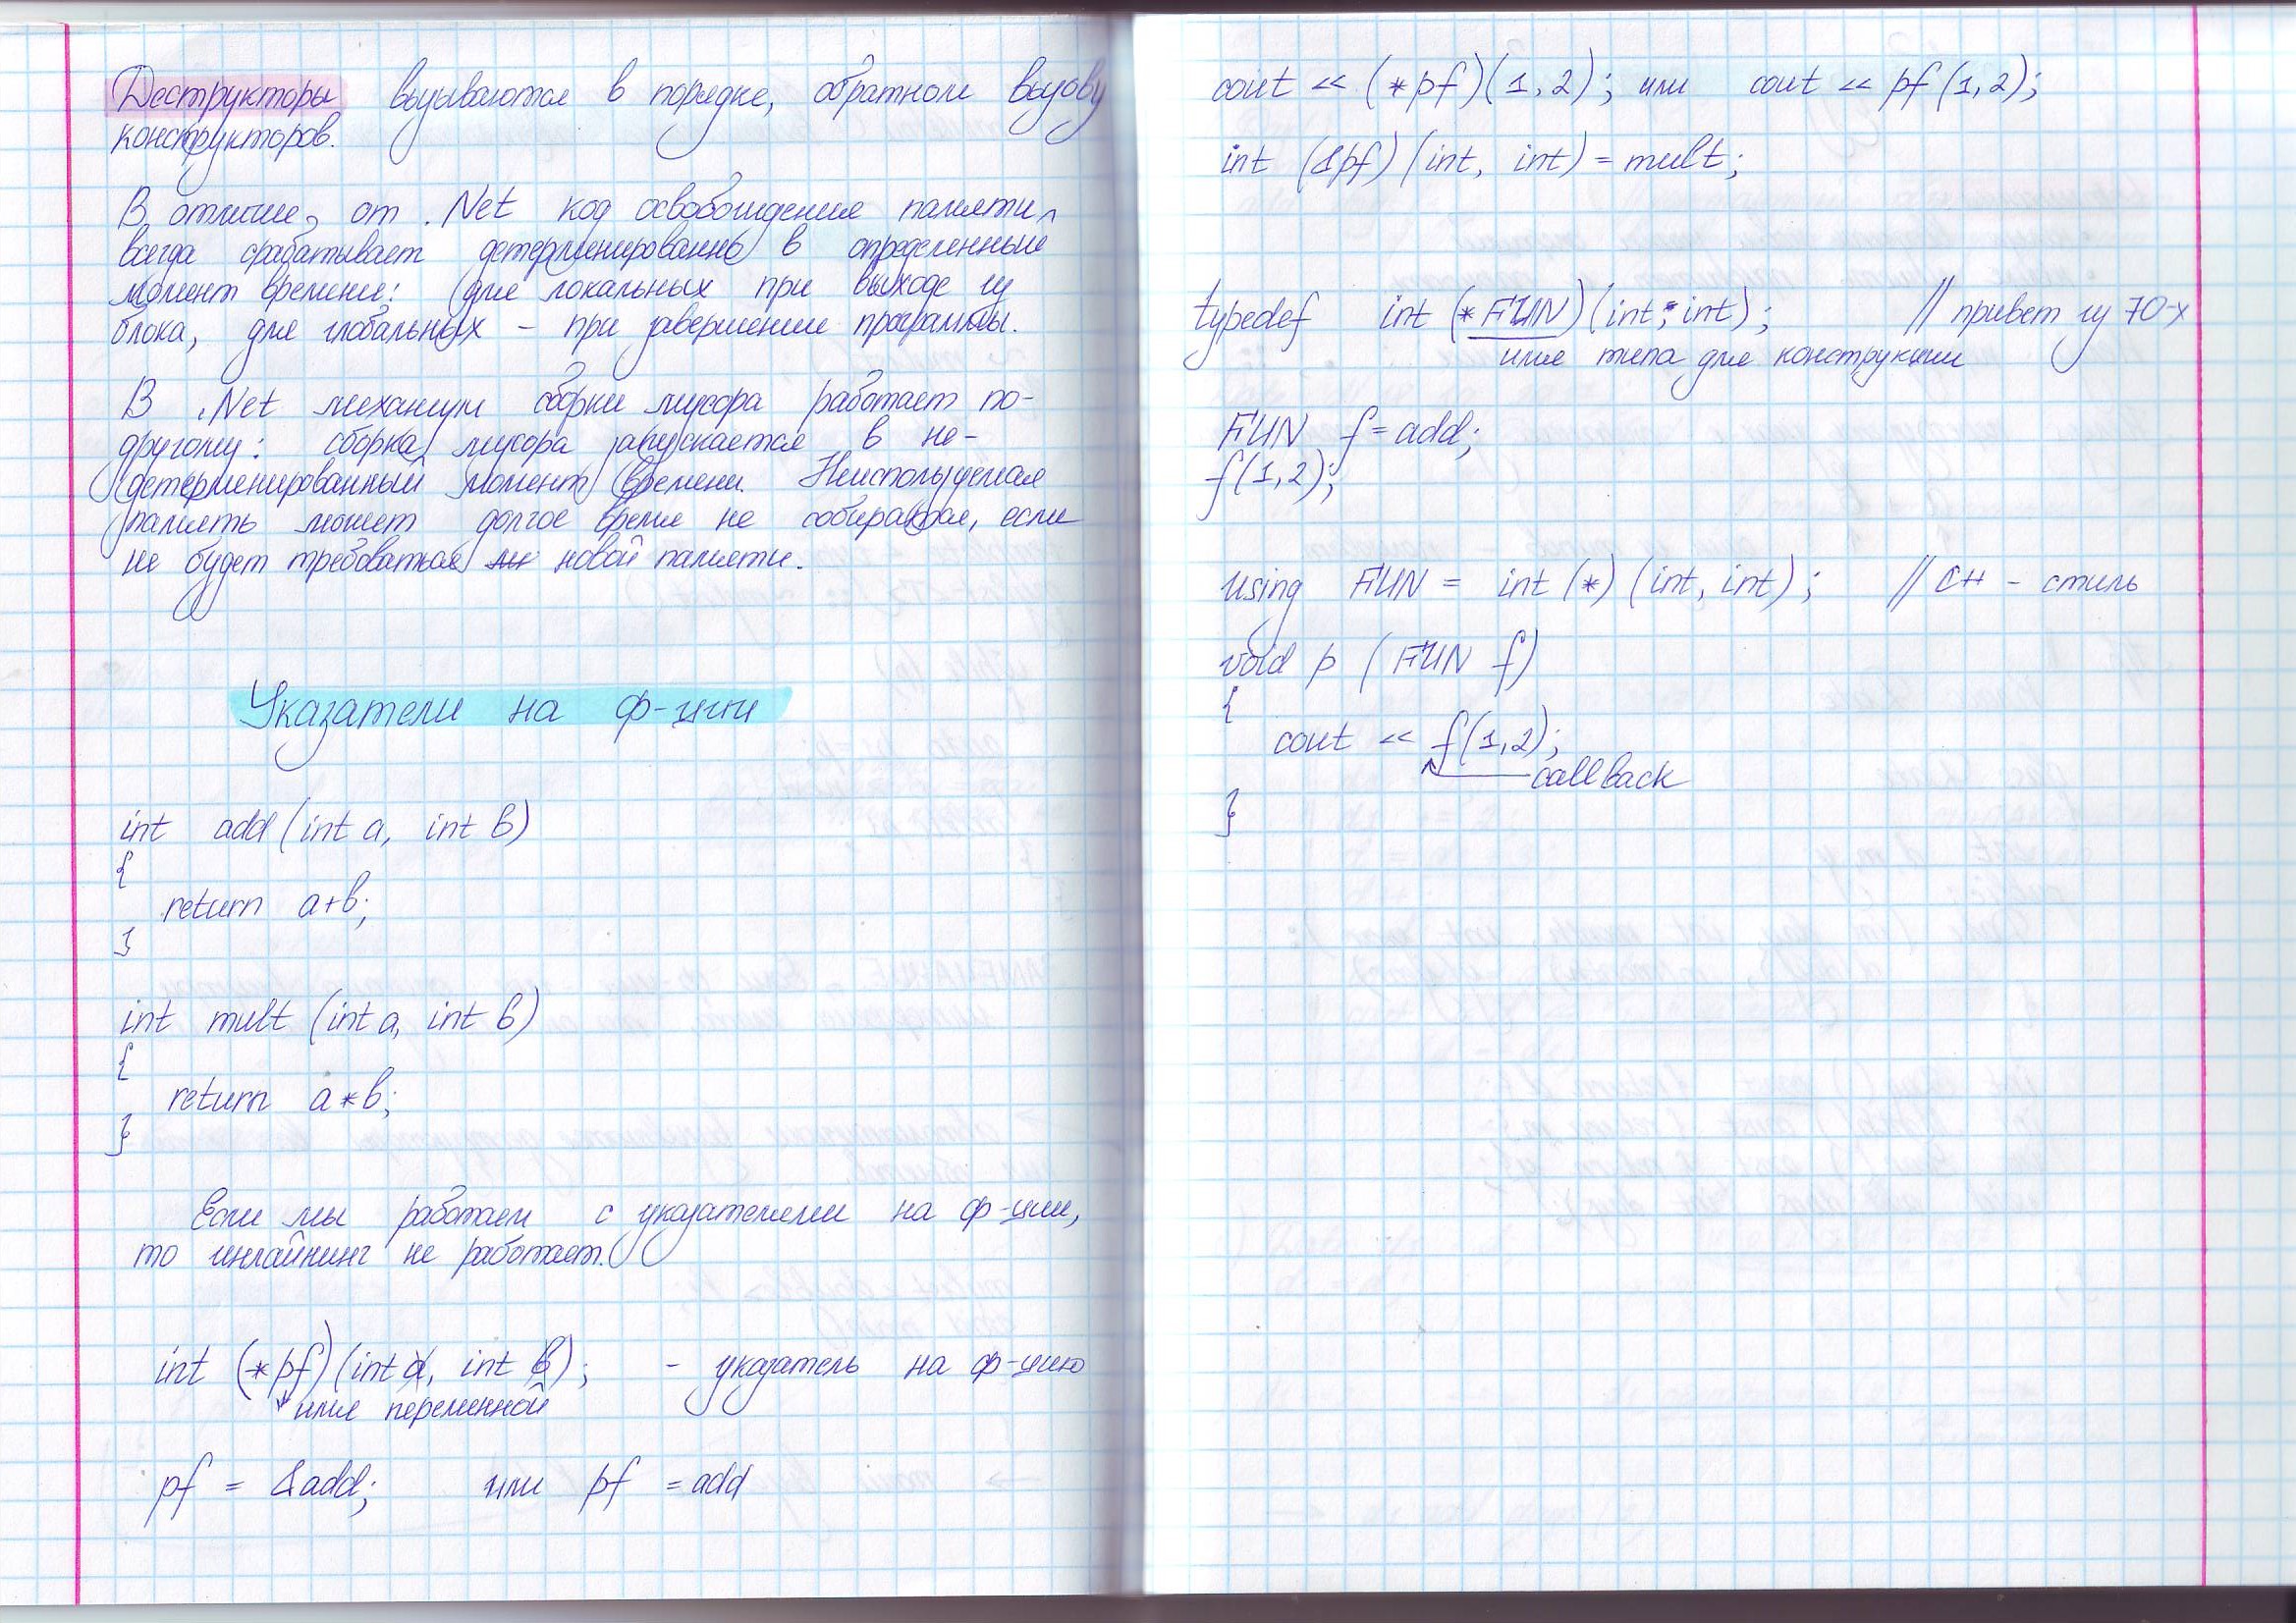 Деструкторы вызываются в порядке, обратном вызову
конструкторов.
В отличие от .Net код освобождения памяти
всегда срабатывает детерминированно в определенный
момент времени: (для локальных при выходе из
блока, для глобальных – при завершении программы.
В .Net механизм сборки мусора работает по-
другому: сборка мусора запускается в не-
детерминированный момент времени. Неиспользуемая
память может долгое время не собираться, если
не будет требоваться новой памяти.
Указатели на ф-ции
int add (int a, int b)
{
return a+b;
}
int mult (int a, int b)
{
return a*b;
}
Если мы работаем с указателями на ф-ции,
то инлайнинг не работает.
int (*pf)(int a, int b); - указатель на ф-цию
имя переменной
pf = &add; или pf = add
cout << (*pf)(1,2); или cout << pf(1,2);
int (1pf)(int, int) = mult;
typedef int (*FUN)(int, int); // привет из 70-х
имя типа для конструкции
FUN f = add;
f(1,2);
using FUN = int (*) (int, int); // C++ - стиль
void p (FUN f)
{
cout << f(1,2);
callback
}